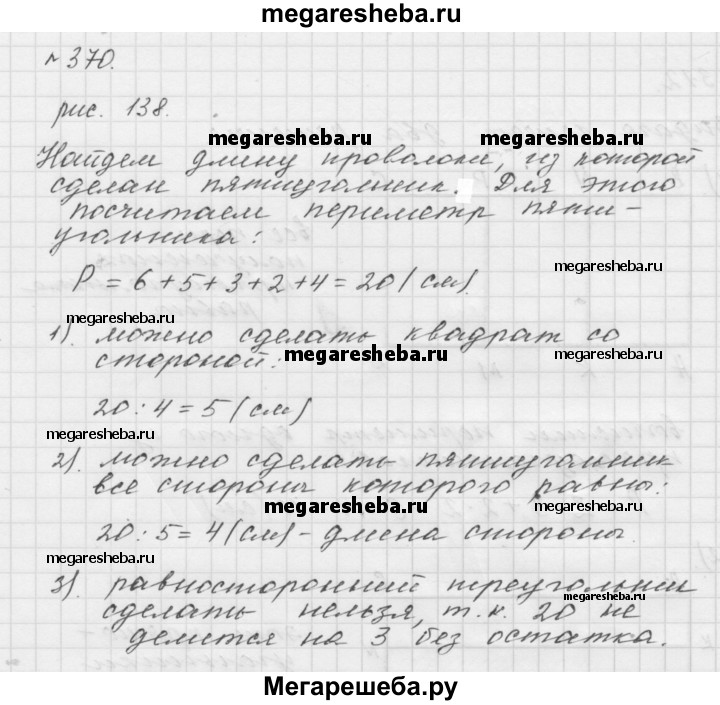 megaresheba.ru
№ 370.
рис. 138.
megaresheba.ru megaresheba.ru
Найдем длину проволоки, из которой
сделан пятиугольник. Для этого
посчитаем периметр пяти-
угольника:
megaresheba.ru
P = 6 + 5 + 3 + 2 + 4 = 20 (см).
megaresheba.ru
1). можно сделать квадрат со
стороной:
megaresheba.ru megaresheba.ru
20 : 4 = 5 (см)
megaresheba.ru megaresheba.ru
2). можно сделать пятиугольник
все стороны которого равны:
megaresheba.ru megaresheba.ru
20 : 5 = 4 (см) - длина стороны.
megaresheba.ru megaresheba.ru
3). равносторонний треугольник
megaresheba.ru
сделать нельзя, т.к. 20 не
делится на 3 без остатка.
megaresheba.ru
Мегарешеба.ру